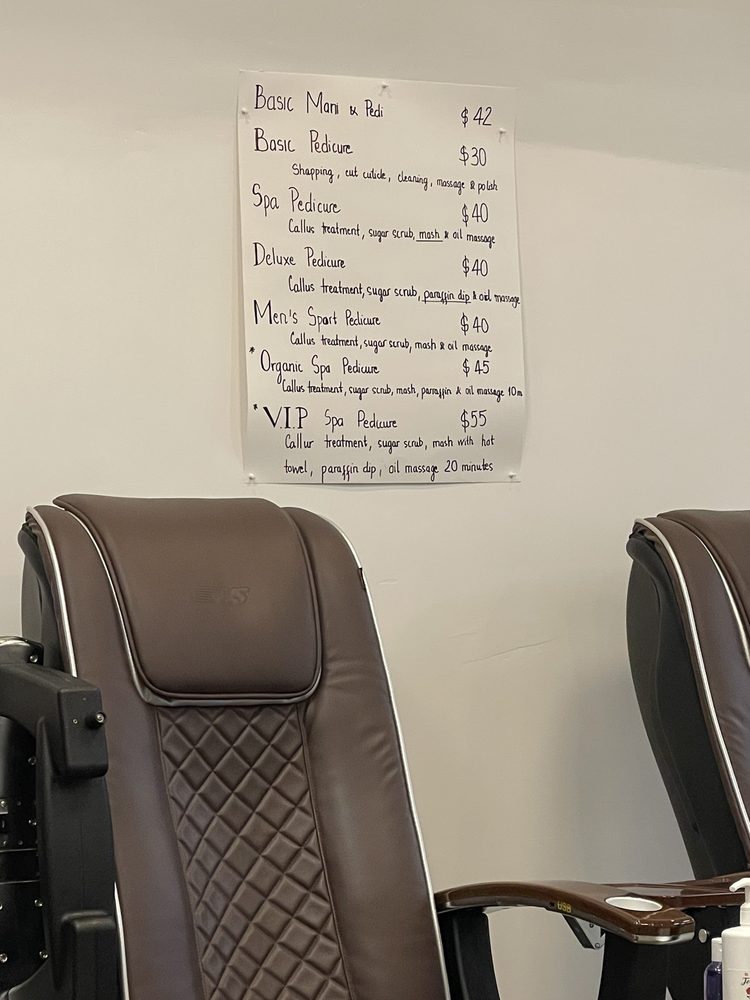 Basic Mani & Pedi $42
Basic Pedicure $30
Shapping, cut cuticle, cleaning, massage & polish
Spa Pedicure $40
Callus treatment, sugar scrub, mash & oil massage
Deluxe Pedicure $40
Callus treatment, sugar scrub, paraffin dip & oil massage
Men's Sport Pedicure $40
Callus treatment, sugar scrub, mash & oil massage
*Organic Spa Pedicure $45
Callus treatment, sugar scrub, mash, paraffin & oil massage 10m
*V.I.P Spa Pedicure $55
Callur treatment, sugar scrub, mash with hot
towel, paraffin dip, oil massage 20 minutes
USB